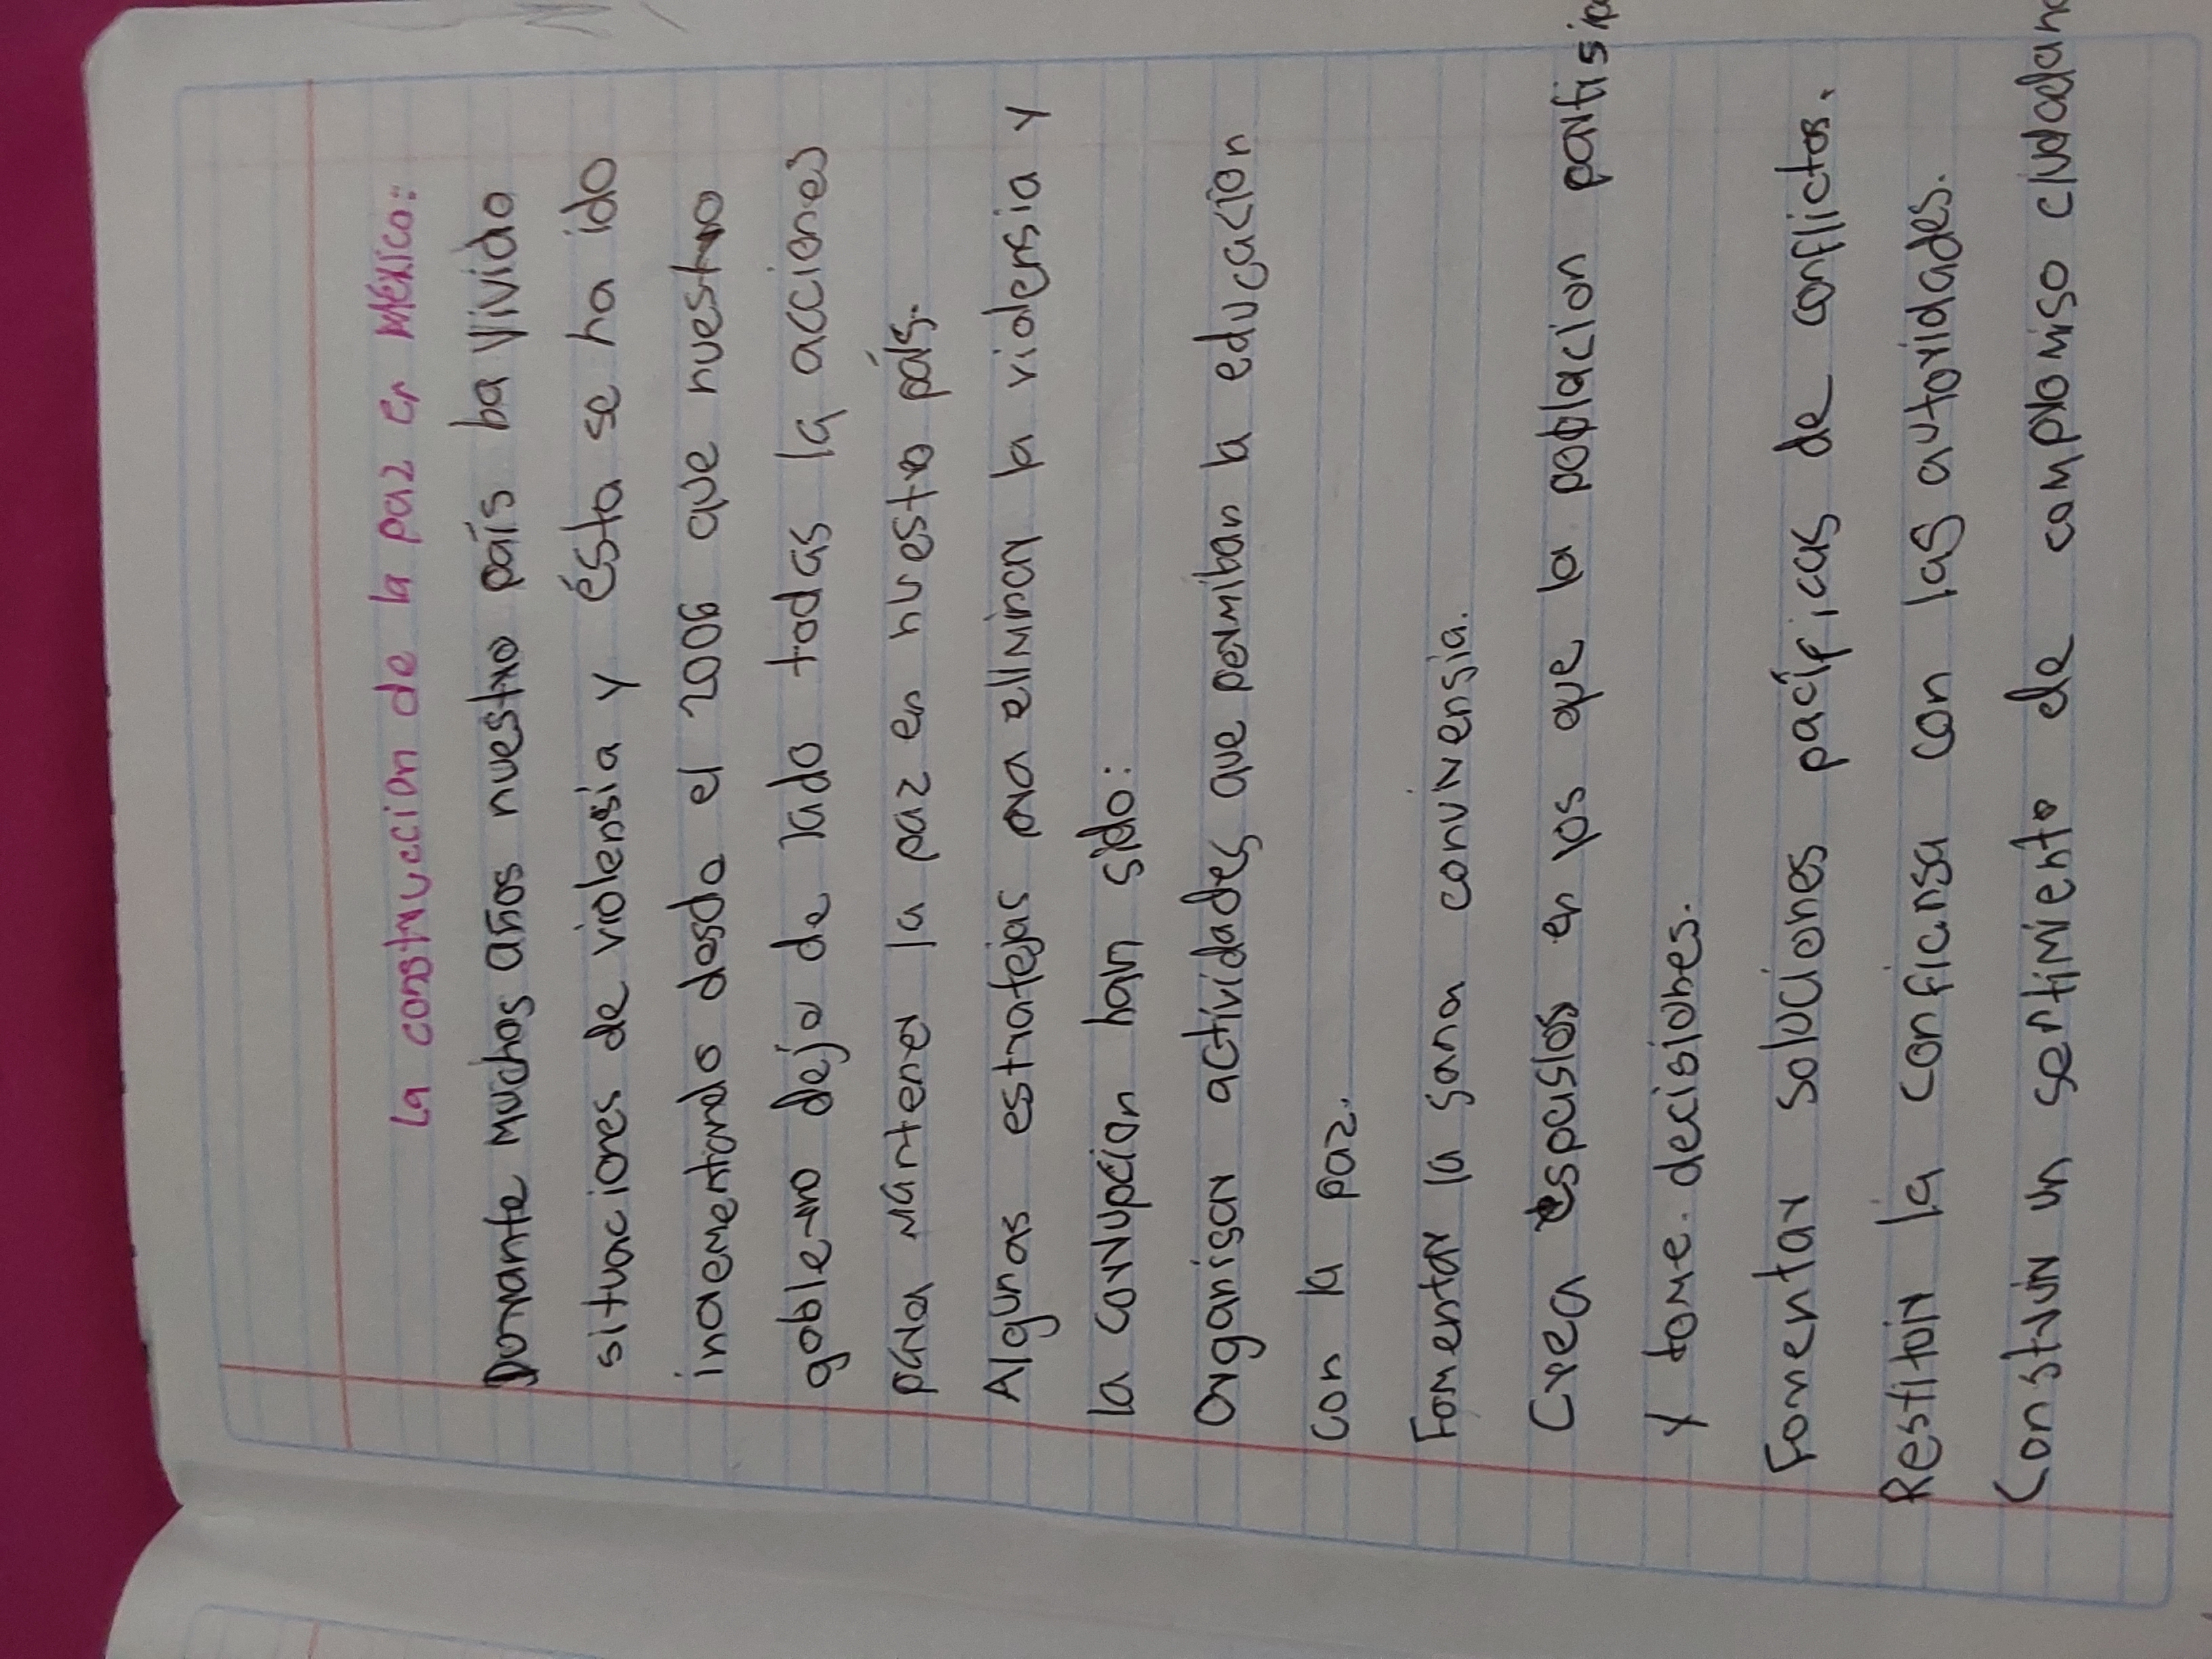 La construccion de la paz en México:
Durante muchos años nuestro país ha vivido
situaciones de violensia y ésta se ha ido
incrementando desde el 2006 que nuestro
gobierno dejo de lado todas la acciones
para mantener la paz en nuestro país.
Algunas estratejas para elliminar la violensia y
la corrupcion han sido:
Organisar actividades que permitan la educacion
con la paz.
Fomentar la sana convivensia.
Crea espasios en los que la poblacion
y tome decisiones.
Fomentar soluciones pacíficas de conflictos.
Restituir la confiansa con las autoridades.
Construir un sentimiento de compromiso